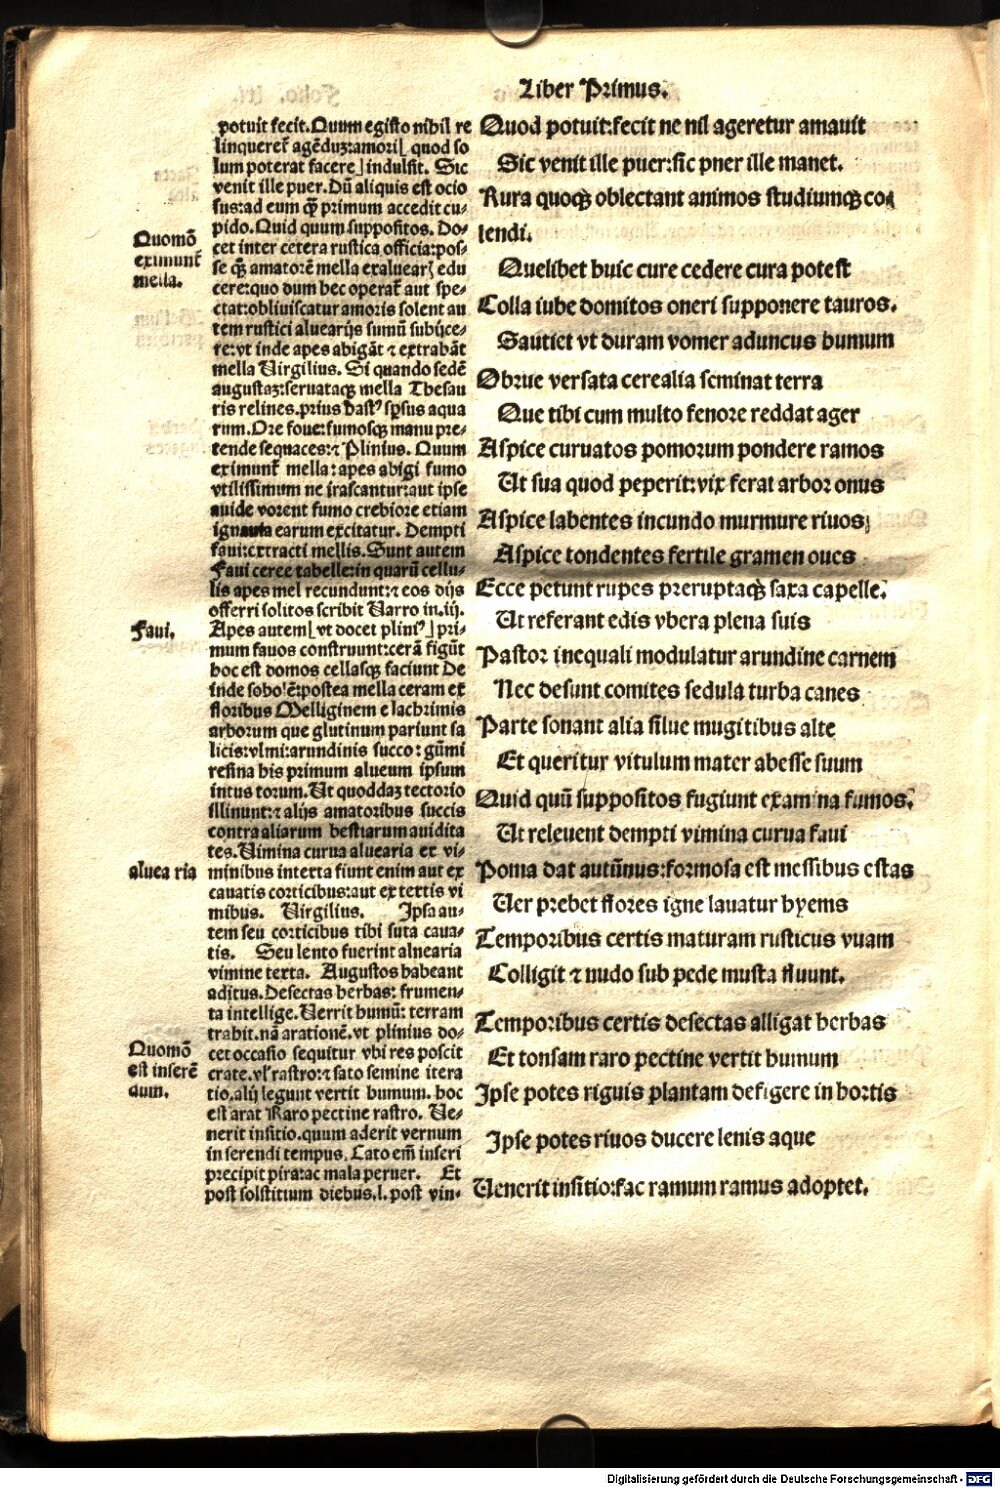 Liber Primus.
potuit fecit. Quum egisto nihil re
linqueret̃ agẽduȝ: amori quod so
lum poterat facere indulsit. Sic
venit ille puer. Dũ aliquis est ocio
sus: ad eum q̃ primum accedit cu-
pido. Quid quum suppositos. Do-
cet inter cetera rustica officia: pos-
se qȝ amatorẽ mella ex aluear edu
cere: quo dum hec operat̃ aut spe-
ctat: obliuiscatur amoris solent au
tem rustici aluearijs sumũ subijce-
re: vt inde apes abigãt ⁊ extrahãt
mella Virgilius. Si quando sedẽ
augustaȝ: seruataqȝ mella Thesau
ris relines. prius hastꝰ sp̃sus aqua
rum. Ore foue: fumosqȝ manu pre-
tende sequaces: ⁊ Plinius. Quum
eximunt̃ mella: apes abigi fumo
vtilissimum ne irascantur: aut ipse
auide vorent fumo crebiore etiam
ignauia earum excitatur. Dempti
faui: extracti mellis. Sunt autem
Faui ceree tabelle: in quarũ cellu-
lis apes mel recundunt: ⁊ eos dijs
offerri solitos scribit Varro in. iij.
Apes autem vt docet pliniꝰ pri-
mum fauos construunt: cerã figũt
hoc est domos cellasqȝ faciunt De
inde sobolẽ: postea mella ceram ex
floribus Melliginem e lachrimis
arborum que glutinum pariunt sa
licis: vlmi: arundinis succo: gũmi
resina his primum alueum ipsum
intus torum. Vt quoddaȝ tectorio
illinunt: ⁊ alijs amatoribus succis
contra aliarum bestiarum auidita
tes. Vimina curua aluearia ex vi-
minibus intexta fiunt enim aut ex
cauatis corticibus: aut ex textis vi
mibus. Virgilius. Ipsa au-
tem seu corticibus tibi suta caua-
tis. Seu lento fuerint alnearia
vimine texta. Augustos habeant
aditus. Desectas herbas: frumen-
ta intellige. Verrit humũ: terram
trahit. nã arationẽ. vt plinius do-
cet occasio sequitur vbi res poscit
crate. vl̃ rastro: ⁊ sato semine itera
tio. alij legunt vertit humum. hoc
est arat Raro pectine rastro. Ue-
nerit insitio. quum aderit vernum
in serendi tempus. Cato em̃ inseri
precipit pira: ac mala per ver. Et
post solstitium diebus. l. post vin-
Quomõ
eximunt̃
mella.
Faui.
aluea ria
Quomõ
est inserẽ
dum.
Quod potuit: fecit ne nil ageretur amauit
Sic venit ille puer: sic pner ille manet.
Rura quoqȝ oblectant animos studiumqȝ co
lendi.
Quelibet huic cure cedere cura potest
Colla iube domitos oneri supponere tauros.
Sautiet vt duram vomer aduncus humum
Obrue versata cerealia seminat terra
Que tibi cum multo fenore reddat ager
Aspice curuatos pomorum pondere ramos
Ut sua quod peperit: vix ferat arbor onus
Aspice labentes incundo murmure riuos
Aspice tondentes fertile gramen oues
Ecce petunt rupes preruptaqȝ saxa capelle.
Ut referant edis vbera plena suis
Pastor inequali modulatur arundine carnem
Nec desunt comites sedula turba canes
Parte sonant alia silue mugitibus alte
Et queritur vitulum mater abesse suum
Quid quũ suppositos fugiunt examina fumos.
Ut releuent dempti vimina curua faui
Poma dat autũnus: formosa est messibus estas
Uer prebet flores igne lauatur hyems
Temporibus certis maturam rusticus vuam
Colligit ⁊ nudo sub pede musta fluunt.
Temporibus certis desectas alligat herbas
Et tonsam raro pectine vertit humum
Ipse potes riguis plantam defigere in hortis
Ipse potes riuos ducere lenis aque
Uenerit insitio: fac ramum ramus adoptet.
Digitalisierung gefördert durch die Deutsche Forschungsgemeinschaft - DFG